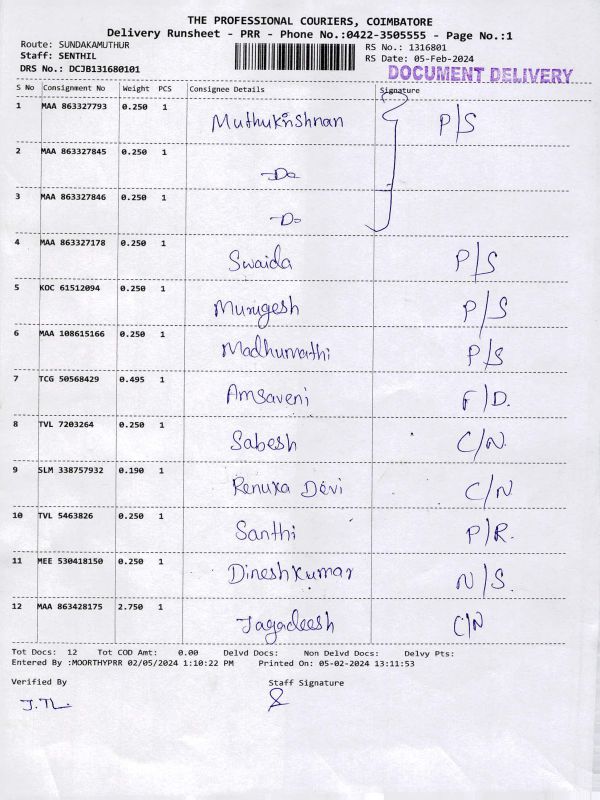 THE PROFESSIONAL COURIERS, COIMBATORE
Delivery Runsheet - PRR - Phone No.:0422-3505555 - Page No.:1
Route: SUNDAKAMUTHUR RS No.: 1316801
Staff: SENTHIL RS Date: 05-Feb-2024
DRS No.: DCJB131680101 DOCUMENT DELIVERY
S No Consignment No Weight PCS Consignee Details Signature
1 MAA 863327793 0.250 1 Muthukrishnan P/S
2 MAA 863327845 0.250 1 -Do
3 MAA 863327846 0.250 1 -Do
4 MAA 863327178 0.250 1 Swaida P/S
5 KOC 61512094 0.250 1 Murugesh P/S
6 MAA 108615166 0.250 1 Madhumathi P/S
7 TCG 50568429 0.495 1 Amsaveni F/D.
8 TVL 7203264 0.250 1 Sabesh C/N.
9 SLM 338757932 0.190 1 Renuka Devi C/N
10 TVL 5463826 0.250 1 Santhi P/R.
11 MEE 530418150 0.250 1 Dineshkumar N/S.
12 MAA 863428175 2.750 1 Jagadeesh C/N
Tot Docs: 12 Tot COD Amt: 0.00 Delvd Docs: Non Delvd Docs: Delvy Pts:
Entered By :MOORTHYPRR 02/05/2024 1:10:22 PM Printed On: 05-02-2024 13:11:53
Verified By Staff Signature